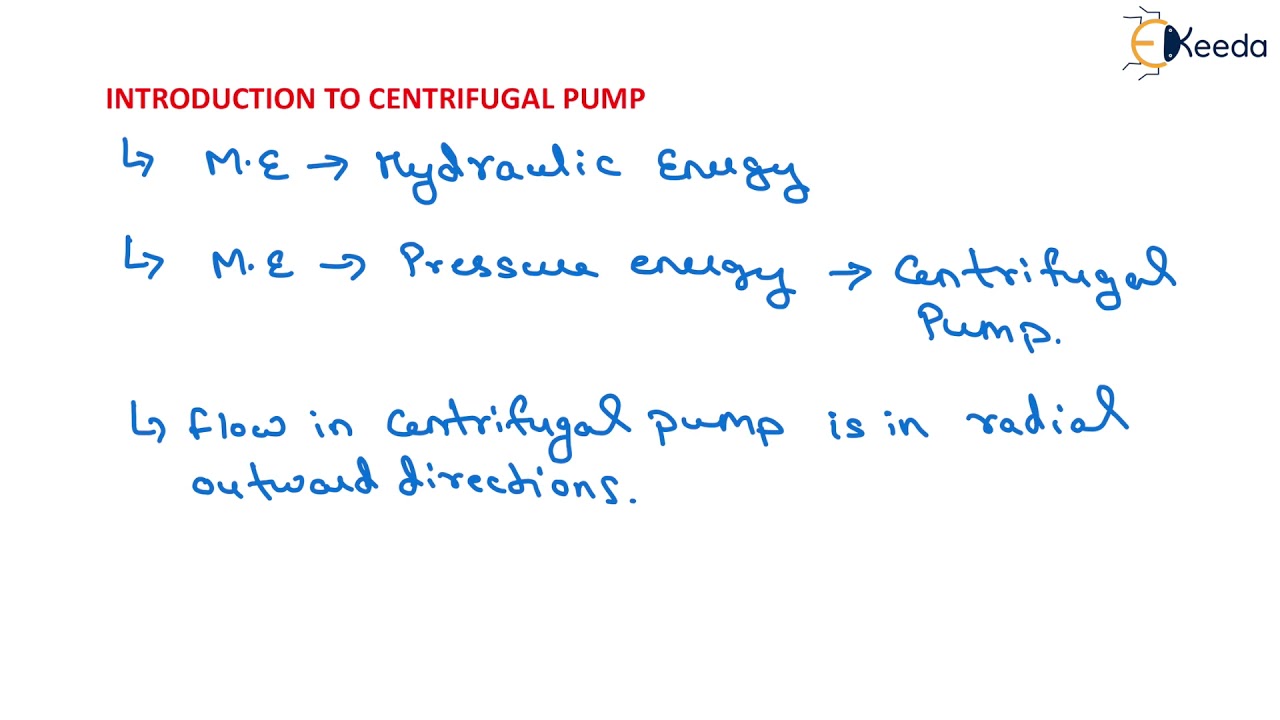 EKeeda
INTRODUCTION TO CENTRIFUGAL PUMP
↳ M.E → Hydraulic Energy
↳ M.E → Pressure energy → Centrifugal
Pump.
↳ flow in Centrifugal pump is in radial
outward directions.